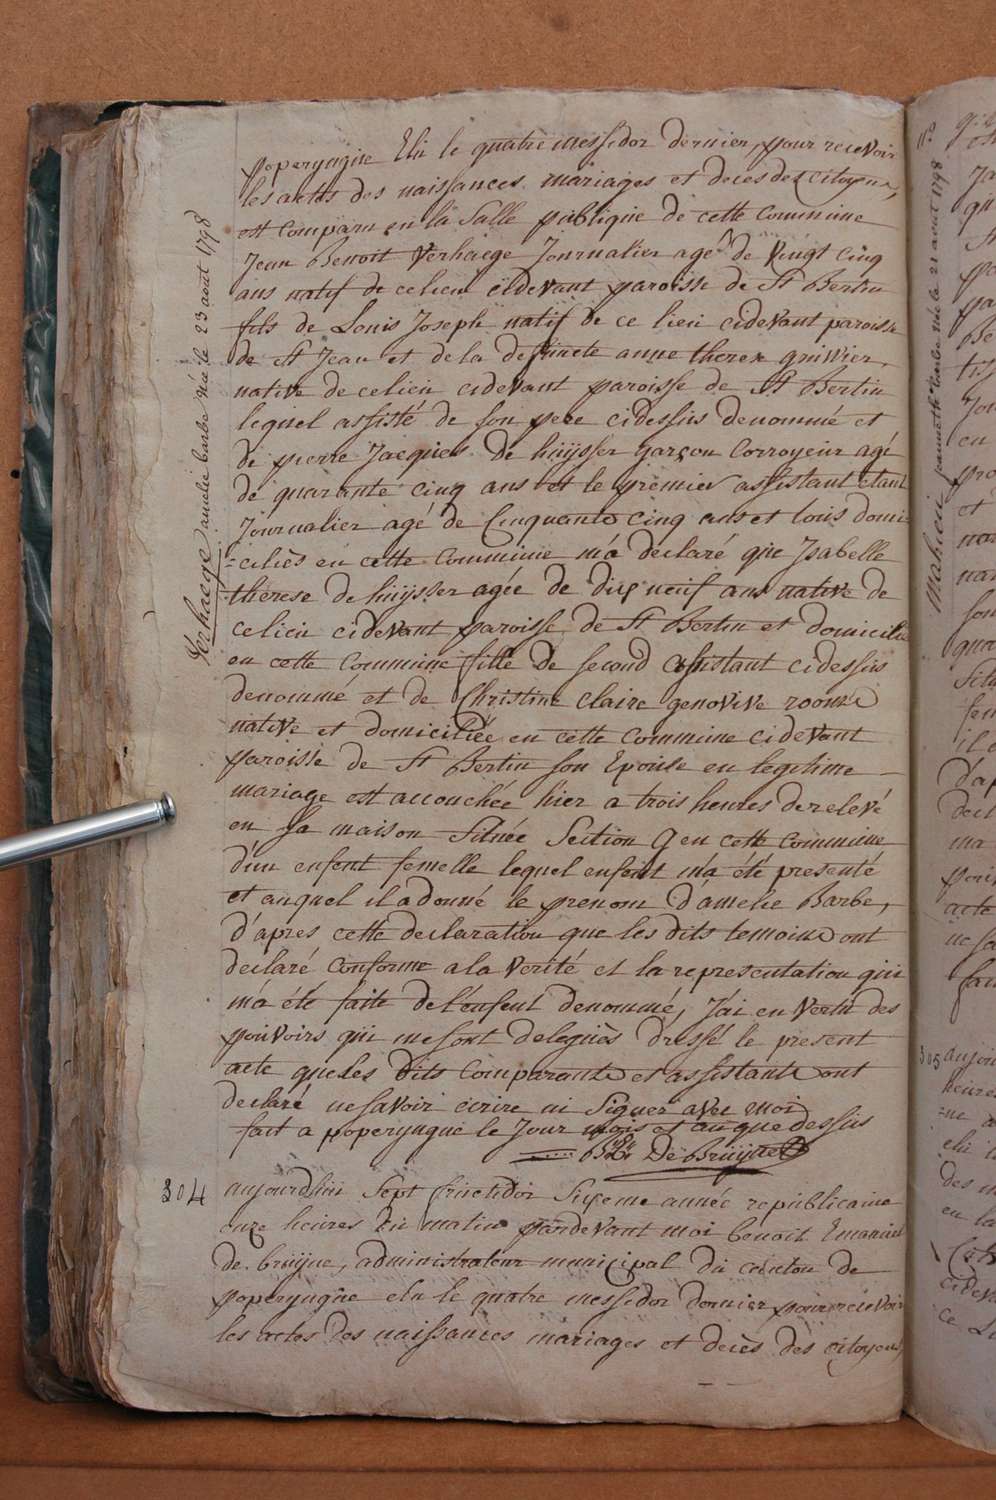 poperyngüe Elü le quatre messidor dernier, pour recevoir
les actes des naissances mariages et deces des Citoyens,
est comparu en la Salle publique de cette Commüne
Jean Benoit Verhaege Journalier agé de Vingt cinq
ans natif de ce lieu cidevant paroisse de St Bertin
fils de Loüis Joseph natif de ce lieu cidevant paroisse
de St Jean et de la defüncte anne therese
native de ce lieu cidevant paroisse de St Bertin
lequel assisté de son pere cidessus denommé et
de pierre Jacques De huÿsser garçon Corroyeur agé
de quarante cinq ans et le premier assistant etant
Journalier agé de Cinquante cinq ans et toüs domi-
=ciliés en cette Commüne m'a declaré que Isabelle
therese De huÿsser agée de dix neuf ans native de
ce lieu cidevant paroisse de St Bertin et domiciliée
en cette Commüne fille de second assistant cidessus
denommé et de Christine Claire genovive
native et domiciliée en cette Commüne cidevant
paroisse de St Bertin son Epouse en legitime
mariage est accouchée hier a trois heures de relevé
en Sa maison Sitüée Section en cette Commüne
d'un enfent femelle lequel enfent m'a été presenté
et auquel il a donné le prenom d'amelie Barbe,
d'apres cette declaration que les dits temoins ont
declaré Conforme a la Verité et la representation qui
m'a été faite de l'enfent denommé, J'ai en Vertu des
pouvoirs qui me sont delegués dressé le present
acte que les dits Comparants et assistants ont
declaré ne savoir ecrire ni Signer avec moi
fait a poperyngue le Jour mois et an que dessus
De Brüÿne
Verhaege amelie barbe née le 23 aout 1798
304
aujourdhui Sept fructidor Sixeme année republicaine
onze heures du matin pardevant moi benoit Emanuel
de brüÿne, administrateur municipal du canton de
poperyngüe elu le quatre messidor dernier pour recevoir
les actes des naissances mariages et decès des citoyens,
Mahieu jeannette barbe née le 21 aout 1798
305